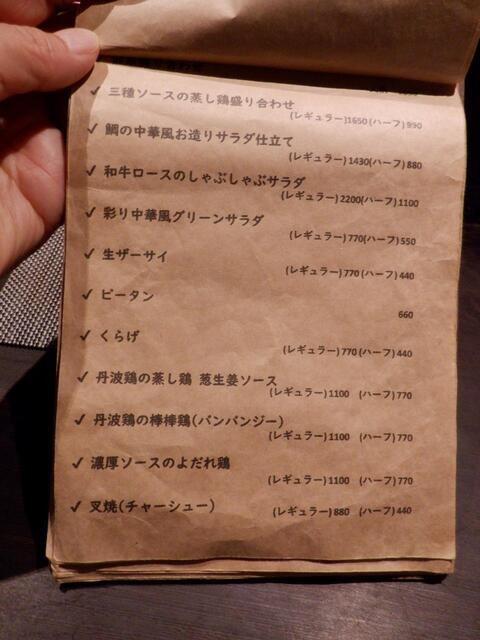 ✓ 三種ソースの蒸し鶏盛り合わせ
(レギュラー)1650(ハーフ) 990
✓ 鯛の中華風お造りサラダ仕立て
(レギュラー)1430(ハーフ) 880
✓ 和牛ロースのしゃぶしゃぶサラダ
(レギュラー)2200(ハーフ)1100
✓ 彩り中華風グリーンサラダ
(レギュラー)770(ハーフ) 550
✓ 生ザーサイ
(レギュラー)770(ハーフ) 440
✓ ピータン
660
✓ くらげ
(レギュラー)770(ハーフ) 440
✓ 丹波鶏の蒸し鶏 葱生姜ソース
(レギュラー)1100 (ハーフ) 770
✓ 丹波鶏の棒棒鶏(バンバンジー)
(レギュラー)1100 (ハーフ) 770
✓ 濃厚ソースのよだれ鶏
(レギュラー)1100 (ハーフ) 770
✓ 叉焼(チャーシュー)
(レギュラー)880 (ハーフ) 440